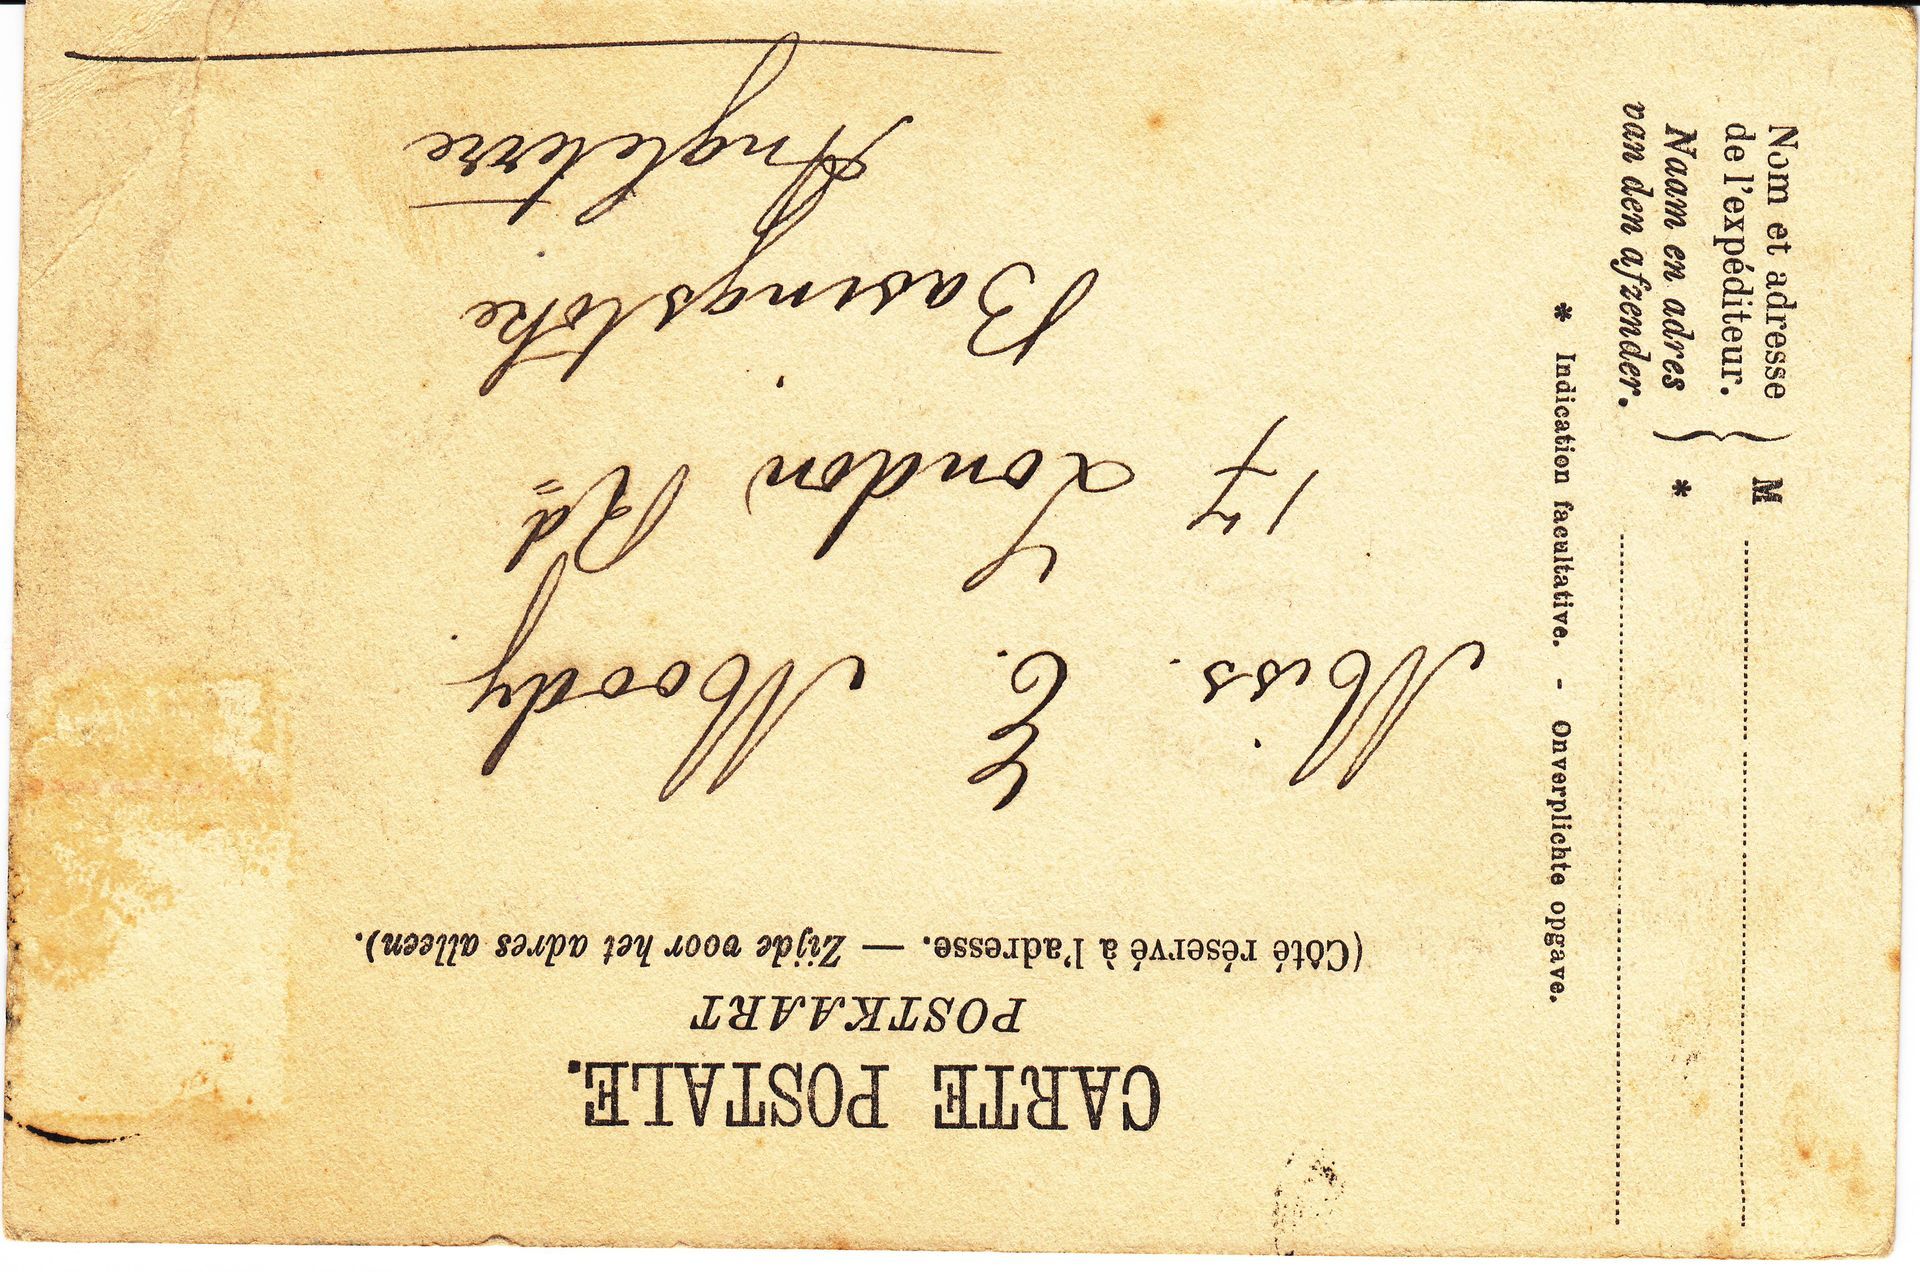 CARTE POSTALE.
POSTKAART
(Côté réservé à l'adresse. — Zijde voor het adres alleen).
Miss. E. Moody
17 London Rd
Basingstoke
Angleterre
Nom et adresse
de l'expéditeur.
Naam en adres
van den afzender.
} M
*
* Indication facultative. - Onverplichte opgave.